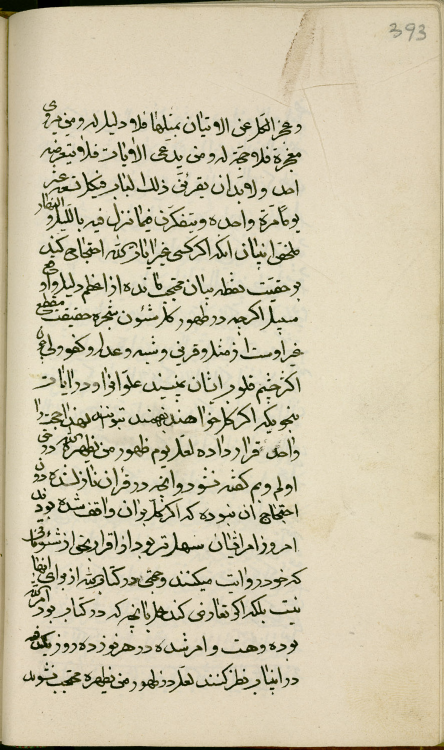 393
و عجز الکل عن الاوتیان بمثلها فلا دلیل له و من یروی
معجزة فلا حجة له و من یدعی الایات فلا یتعرضه
احد و لا بد ان یقرئن ذلک الباب فی کل تسعة عشر
یوماً مرة واحدة و یتفکرن فیما نزل فیه باللیل و النهار
ملخص این بیان آنکه اگر کسی بغیر ایات الله احتجاج کند
بر حقیت نقطه بیان محتجب مانده از اعظم دلیل و اوضح
سبیل اگرچه در ظهور کل شئون شجره حقیقت مقطع
غیر اوست از مثل و قرین و شبه و عدل و کفو ولی چون
اگر چشم قلوب انسان ببینند علو او را در ایات
بنحویکه اگر کل خواهند بفهمند توانند لهذا حجت را
واحد قرار داده لعل یوم ظهور من یظهره الله در حق
او لم و بم گفته نشود و آنچه در قران نازل شده دون
احتجاج ان نبوده که اگر کل بران واقف شده بودند
امروز امر ایشان سهلتر بود از اقرار بحق از شئوناتی
که خود روایت میکنند و حجتی در کتاب الله از برای انها
نیست بلکه اگر تعارض کند کل بآنچه که در کتاب بود امر الله
بوده و هست و امر شده در هر نوزده روز یکدفعه
در این باب نظر کنند لعل در ظهور من یظهره محتجب نشوند